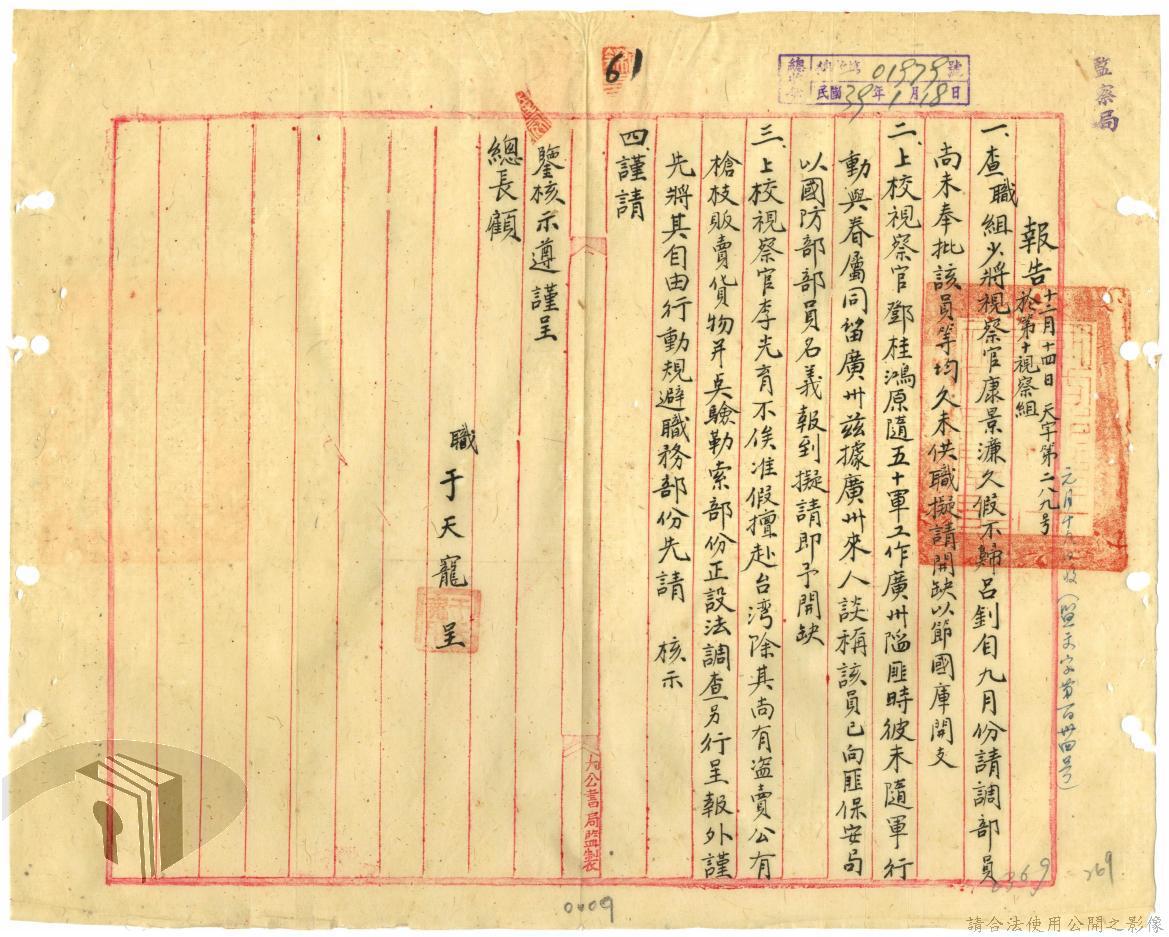 監察局
總 第01979號
民國39年1月18日
61
報告 十二月十四日 天字第二八九号
於第十視察組
一、查職組少將視察官康景濂久假不歸呂釗自九月份請調部員
尚未奉批該員等均久未供職擬請開缺以節國庫開支
二、上校視察官鄧桂鴻原隨五十軍工作廣州陷匪時彼未隨軍行
動與眷屬同留廣州兹據廣州來人談稱該員已向匪保安局
以國防部部員名義報到擬請即予開缺
三、上校視察官李光育不俟准假擅赴台湾除其尚有盗賣公有
槍枝販賣貨物并吳驗勒索部份正設法調查另行呈報外謹
先將其自由行動規避職務部份先請 核示
四、謹請
鑒核示遵謹呈
總長顧
職于天寵呈
九公書局監製
2369
269
0009
請合法使用公開之影像